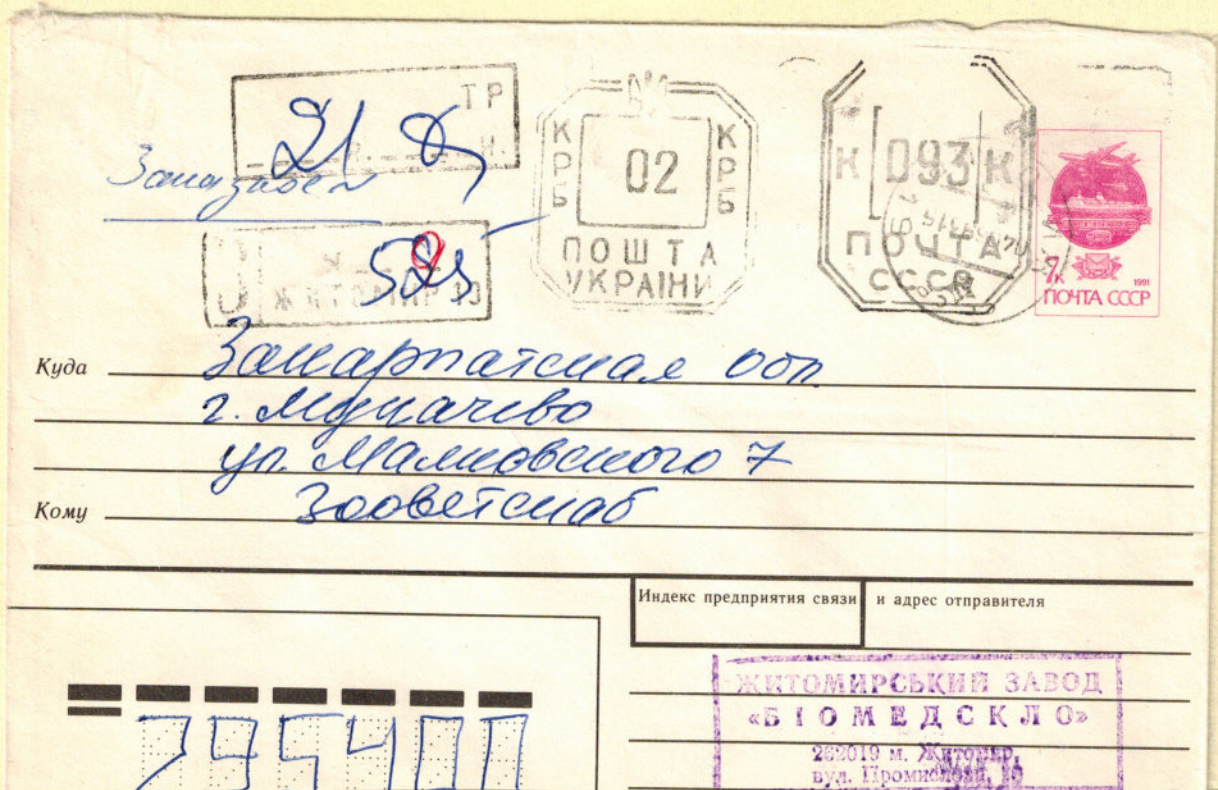 ТР
21
Заказное
КРБ 02 КРБ
ПОШТА
УКРАІНИ
К 093 К
ПОЧТА
СССР
7к
1991
ПОЧТА СССР
525
ЖИТОМИР 10
Куда Закарпатская обл
г. Мукачево
ул. Маяковского 7
Кому Зооветснаб
Индекс предприятия связи и адрес отправителя
ЖИТОМИРСЬКИЙ ЗАВОД
«БІОМЕДСКЛО»
262019 м. Житомир,
вул. Промислова,
295400